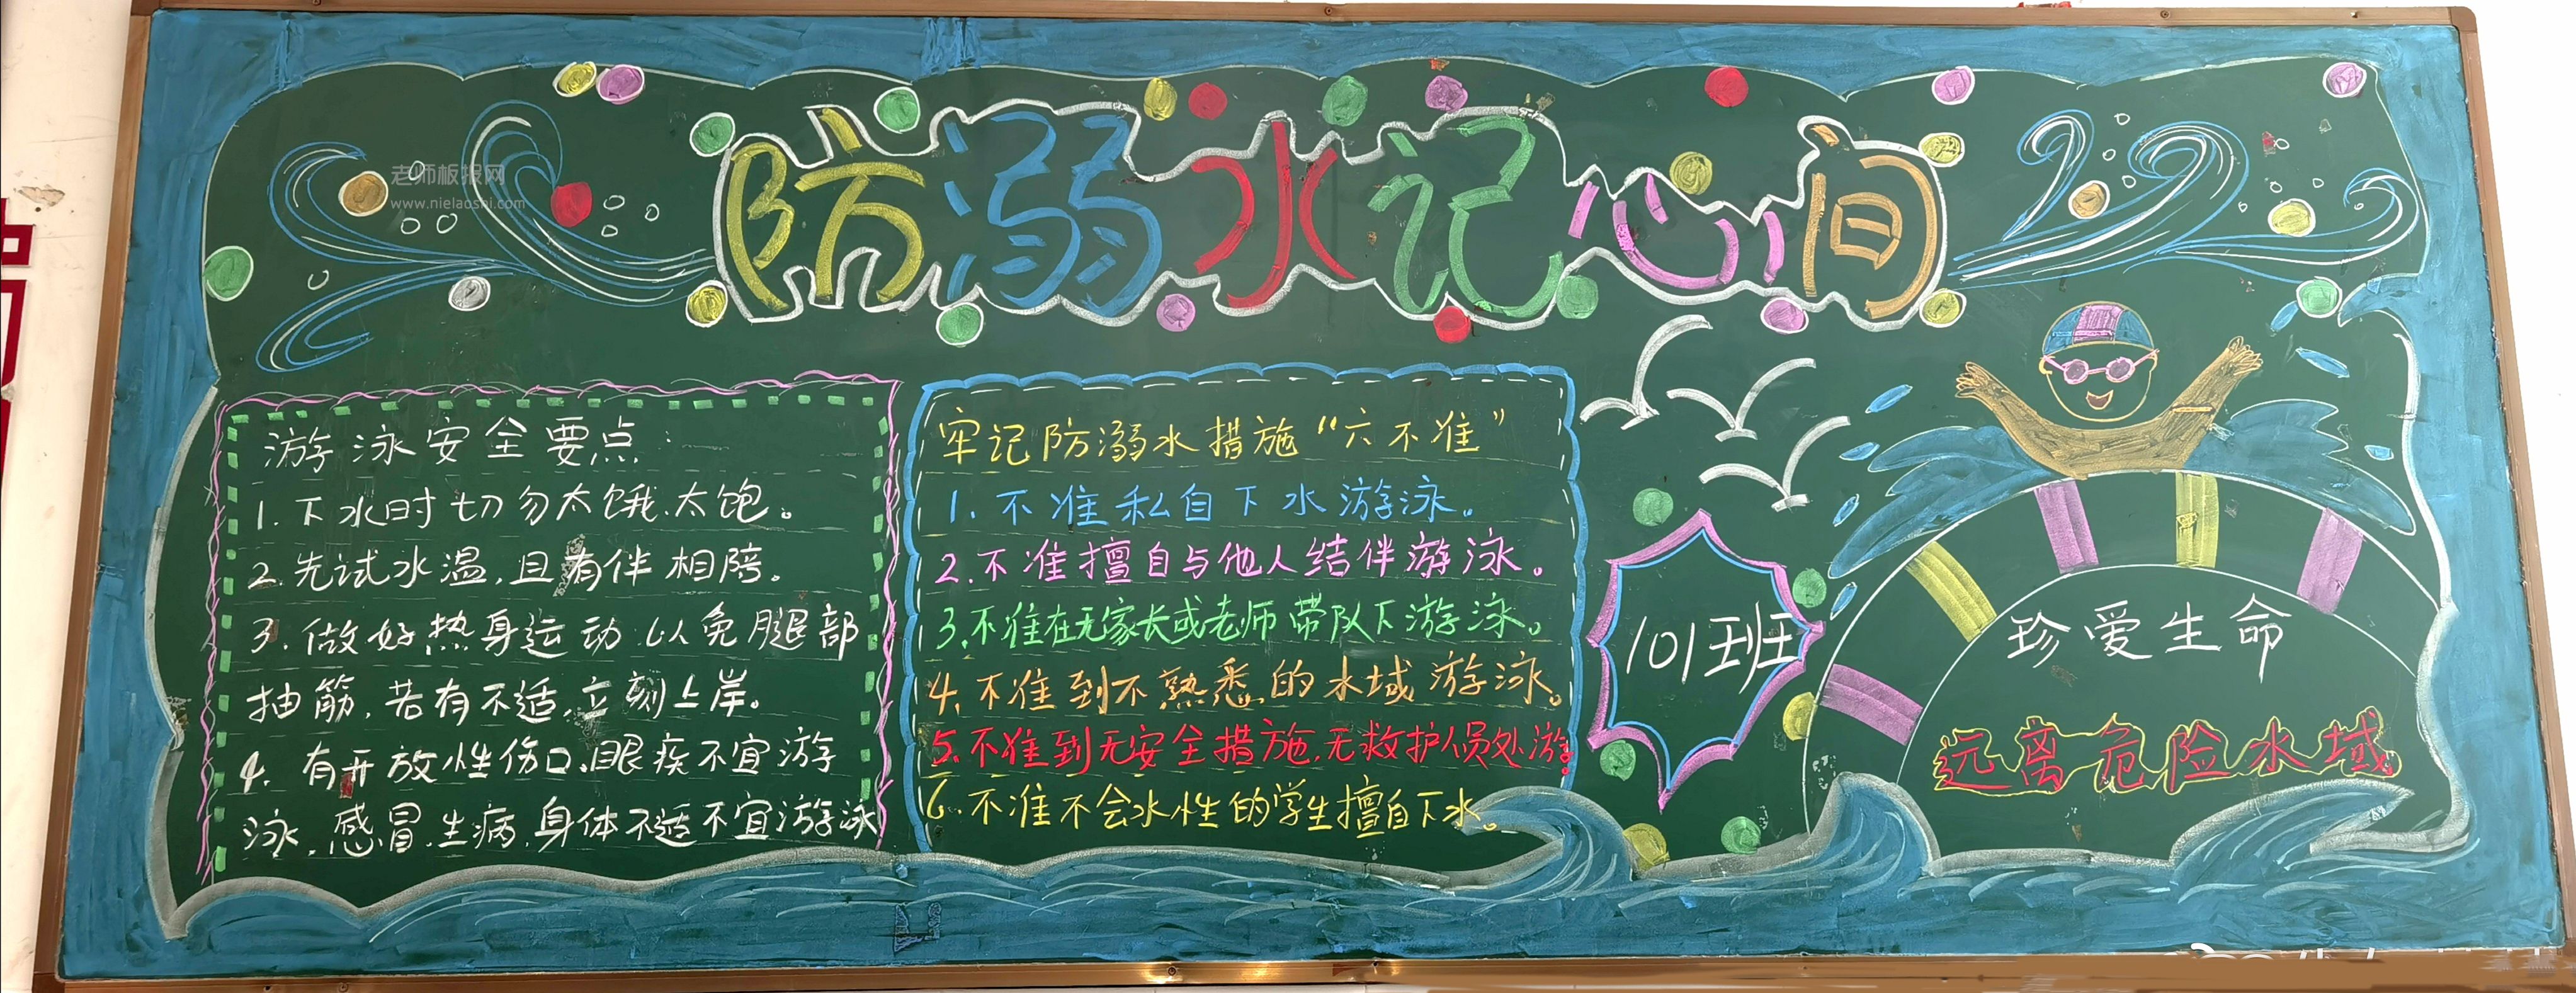 老师板报网
www.nielaoshi.com
防溺水记心间
游泳安全要点:
1.下水时切勿太饿、太饱。
2.先试水温,且有伴相陪。
3.做好热身运动 以免腿部
抽筋,若有不适,立刻上岸。
4.有开放性伤口、眼疾不宜游
泳,感冒、生病,身体不适不宜游泳
牢记防溺水措施“六不准”
1.不准私自下水游泳。
2.不准擅自与他人结伴游泳。
3.不准在无家长或老师带队下游泳。
4.不准到不熟悉的水域游泳。
5.不准到无安全措施,无救护人员处游。
6.不准不会水性的学生擅自下水。
101班
珍爱生命
远离危险水域。